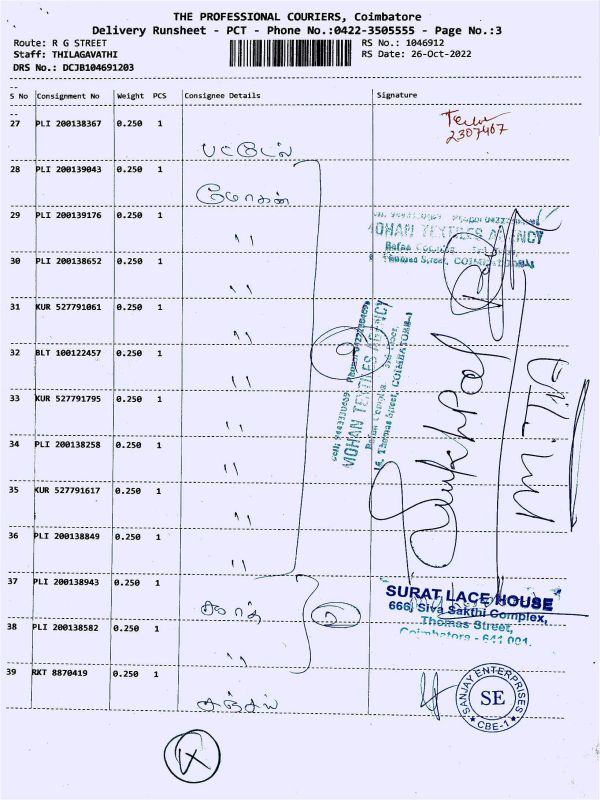 THE PROFESSIONAL COURIERS, Coimbatore
Delivery Runsheet - PCT - Phone No.:0422-3505555 - Page No.:3
Route: R G STREET RS No.: 1046912
Staff: THILAGAVATHI RS Date: 26-Oct-2022
DRS No.: DCJB104691203
S No Consignment No Weight PCS Consignee Details Signature
27 PLI 200138367 0.250 1
2307467
பட்டேல்
28 PLI 200139043 0.250 1
மோகன்
29 PLI 200139176 0.250 1
MOHAN TEXTILES AGENCY
Thomas Street, COIMBATORE
"
30 PLI 200138652 0.250 1
"
31 KUR 527791061 0.250 1
"
32 BLT 100122457 0.250 1
"
33 KUR 527791795 0.250 1
"
34 PLI 200138258 0.250 1
"
35 KUR 527791617 0.250 1
"
36 PLI 200138849 0.250 1
"
MOHAN TEXTILES AGENCY
16, Thomas Street, COIMBATORE-1
M.T.A
37 PLI 200138943 0.250 1
SURAT LACE HOUSE
666, Siva Sakthi Complex,
Thomas Street,
Coimbatore - 641 001.
38 PLI 200138582 0.250 1
"
39 RKT 8870419 0.250 1
சஞ்சய்
SANJAY ENTERPRISES
SE
CBE-1